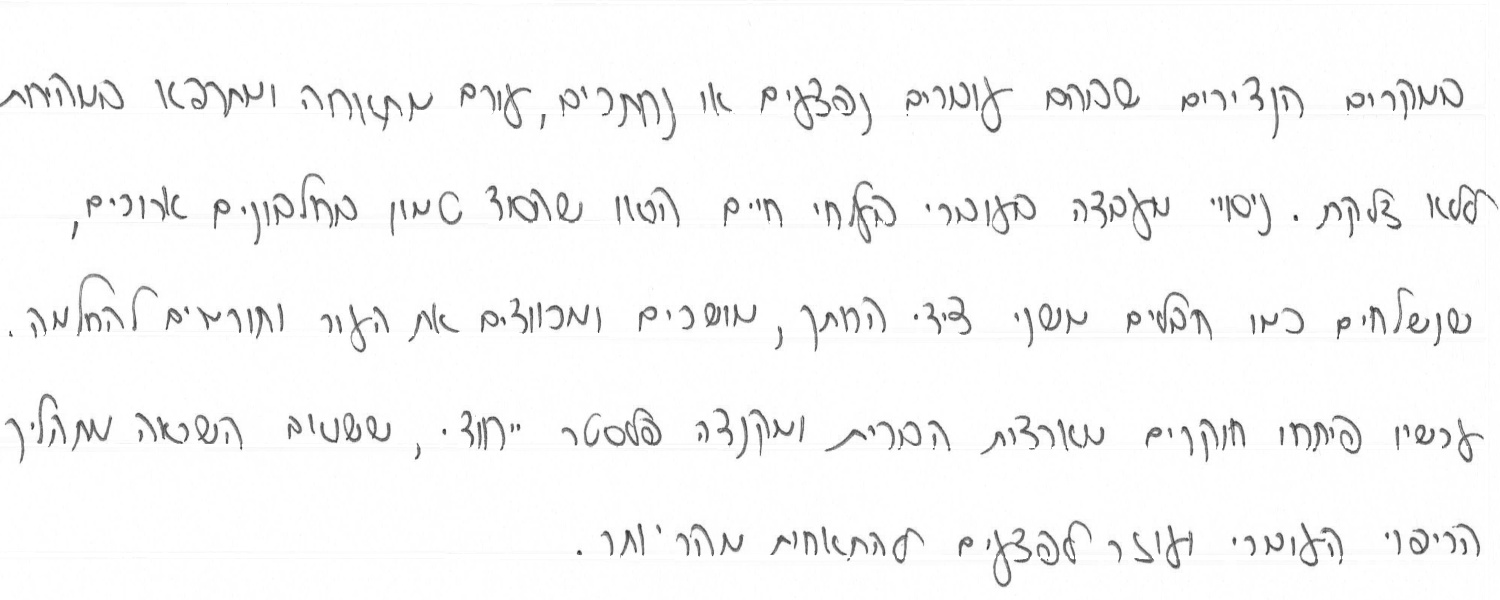 במקרים הנדירים שבהם עוברים נפצעים או נחתכים, עורם מתאחה ומתרפא במהירות
ללא צלקת. ניסויי מעבדה בעוברי בעלי חיים הראו שהסוד טמון בחלבונים ארוכים,
שנשלחים כמו חבלים משני צידי החתך, מושכים ומכווצים את העור ותורמים להחלמה.
עכשיו פיתחו חוקרים מארצות הברית ומקנדה פלסטר ייחודי, ששאוב השראה מתהליך
הריפוי העוברי ועוזר לפצעים להתאחות מהר יותר.